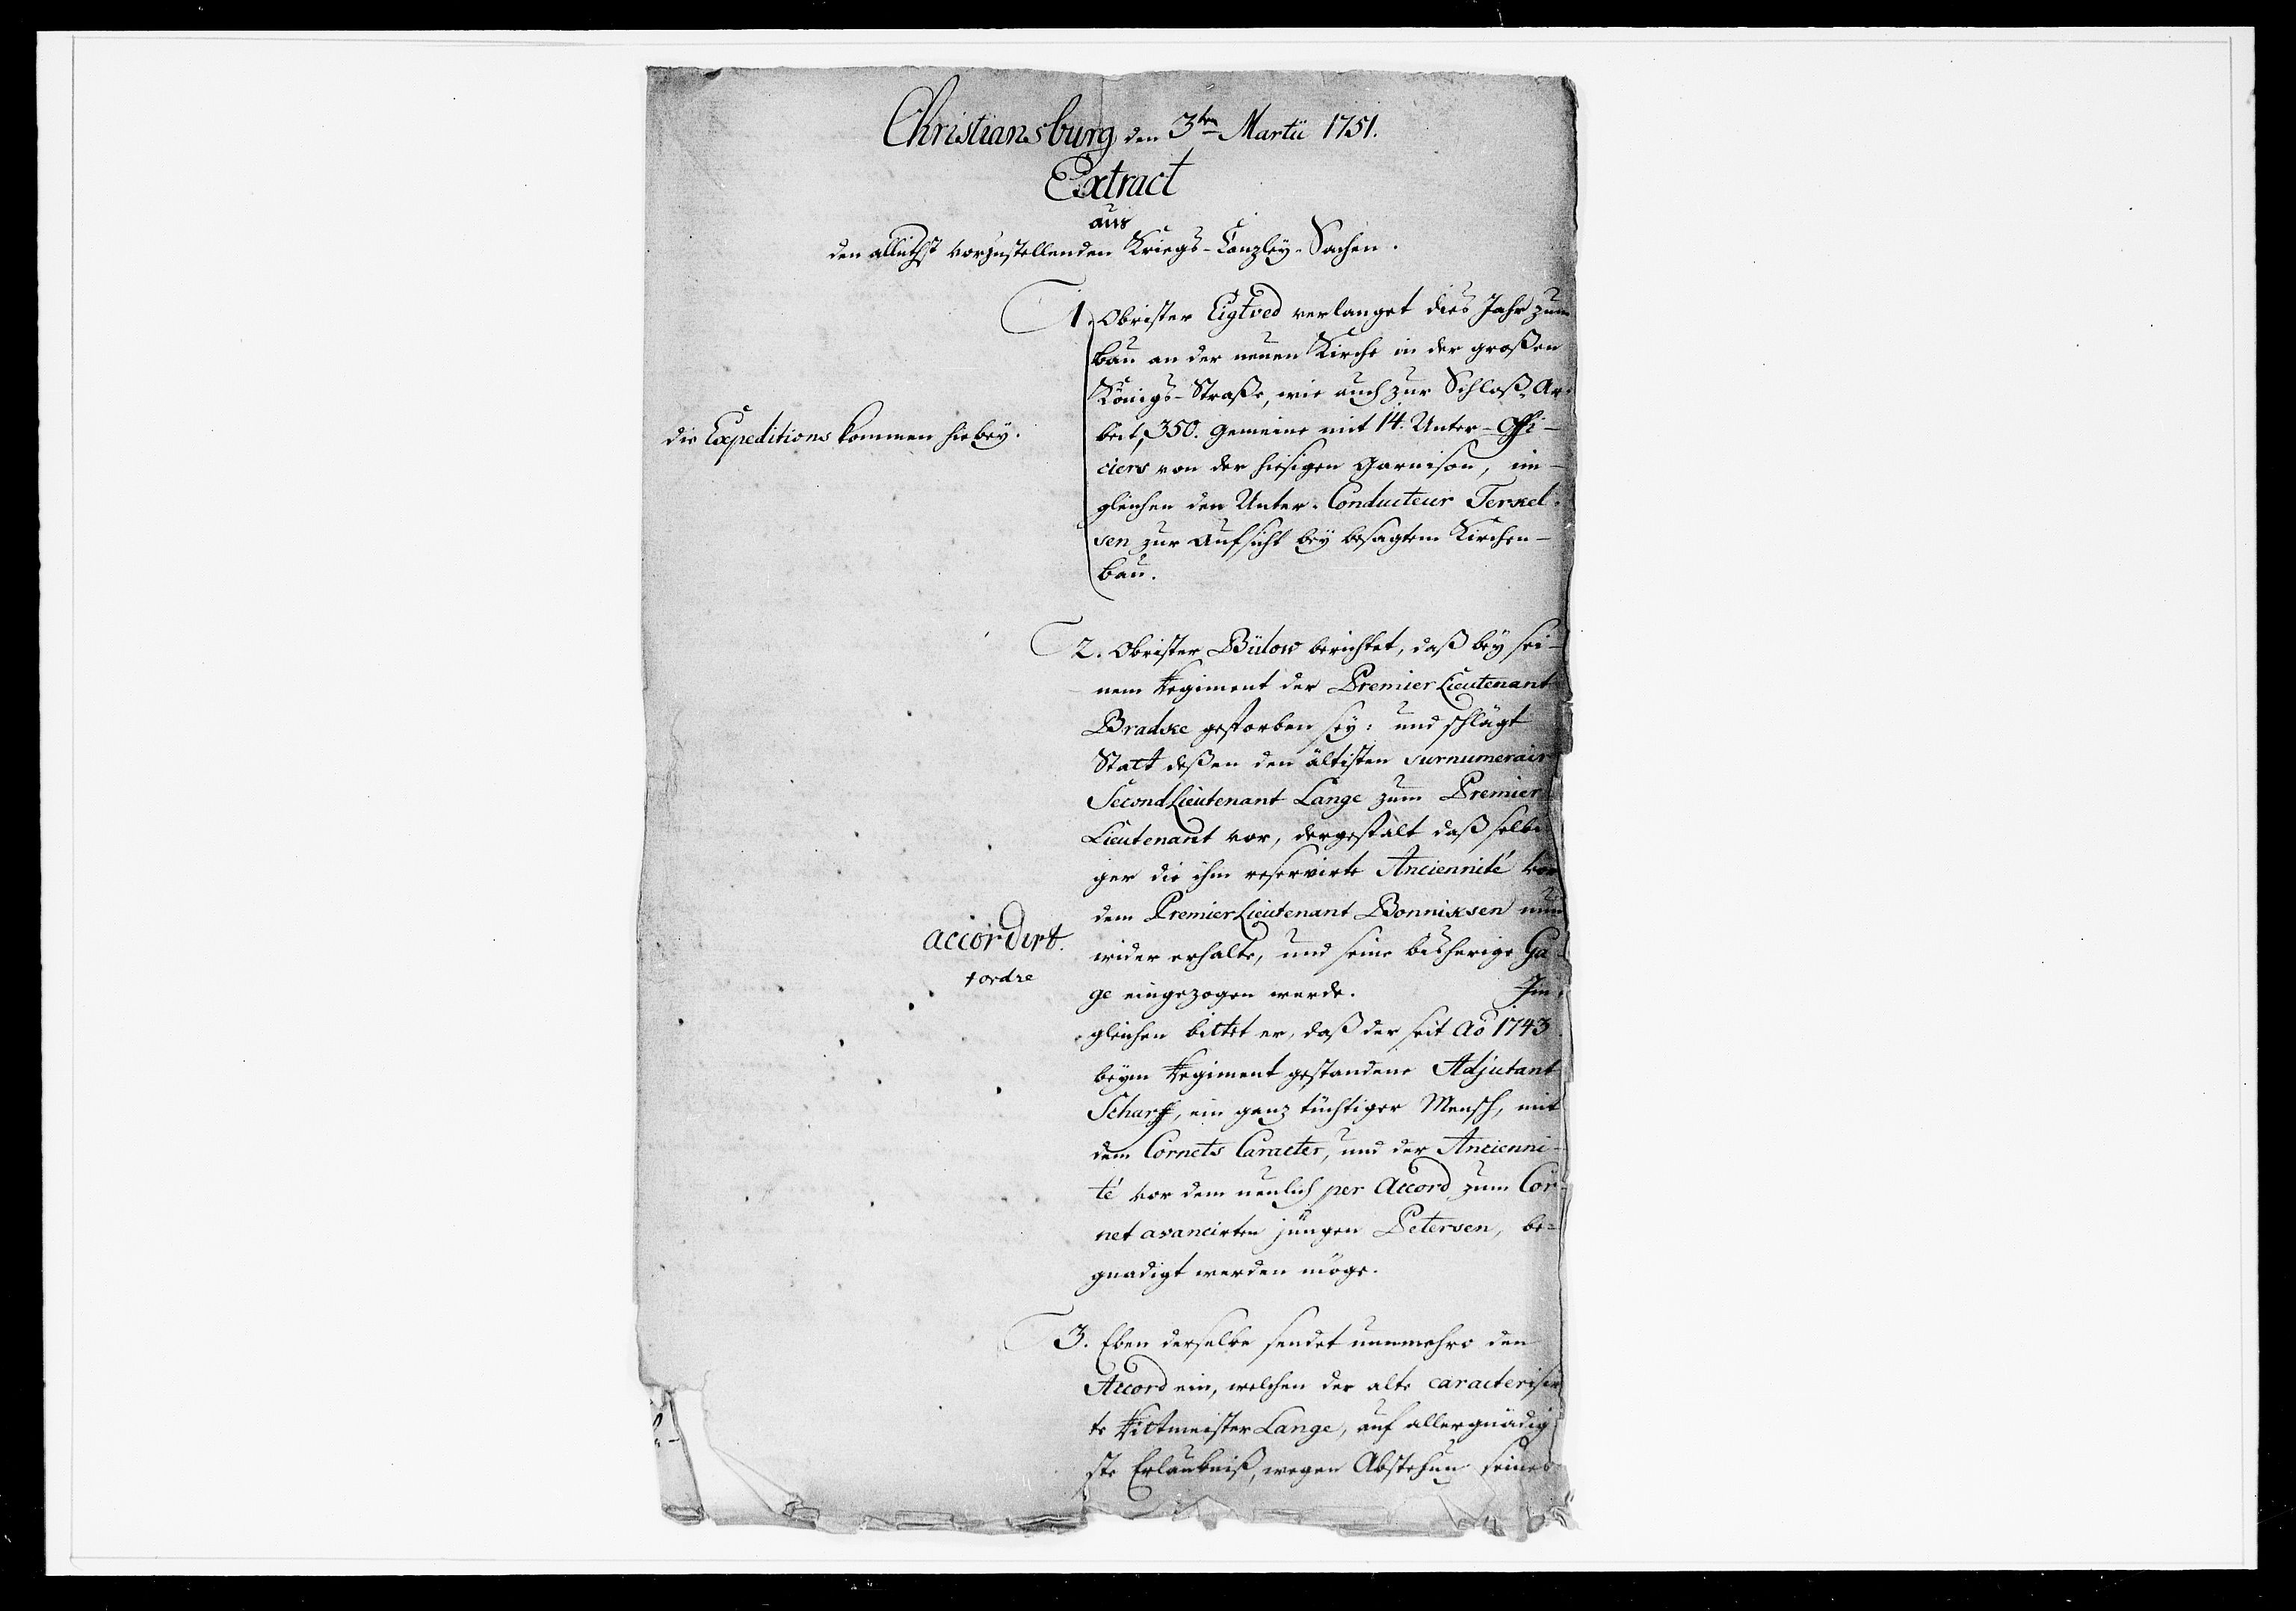 Christiansburg den 3ten Martii 1751.
Extract
aus
den alluthst vorzustellenden Kriegs-Canzley-Sachen.
1. Obrister Eigtved verlanget dies Jahr zum
Bau an der neuen Kirche in der großen
Königs-Straße, wie auch zur Schloß-Ar-
beit, 350. Gemeine mit 14. Unter-Offi-
ciers von der hiesigen Garnison, im-
gleichen den Unter-Conducteur Terkel-
sen zur Aufsicht bey besagtem Kirchen-
bau.
die Expeditions kommen hiebey.
2. Obrister Bülow berichtet, daß bey sei-
nem Regiment der Premier Lieutenant
Bradke gestorben sey: und schlägt
Statt deßen den ältisten surnumerair
Second Lieutenant Lange zum Premier
Lieutenant vor, dergestalt daß selbi-
ger die ihm reservirte Anciennité vor
dem Premier Lieutenant Bonniksen nun
wider erhalte, und seine bisherige Ga-
ge eingezogen werde. Im-
gleichen bittet er, daß der seit Ao 1743
beym Regiment gestandene Adjutant
Scharff, ein ganz tüchtiger Mensch, mit
dem Cornets Caracter, und der Ancienni-
té vor dem neulich per Accord zum Cor-
net avancirten jungen Petersen, be-
gnadigt werden möge.
accordirt.
† ordre
3. Eben derselbe sendet nunmehro den
Accord ein, welchen der alte caracterisir
te Rittmeister Lange, auf allergnädig
ste Erlaubniß, wegen Abstehung seines